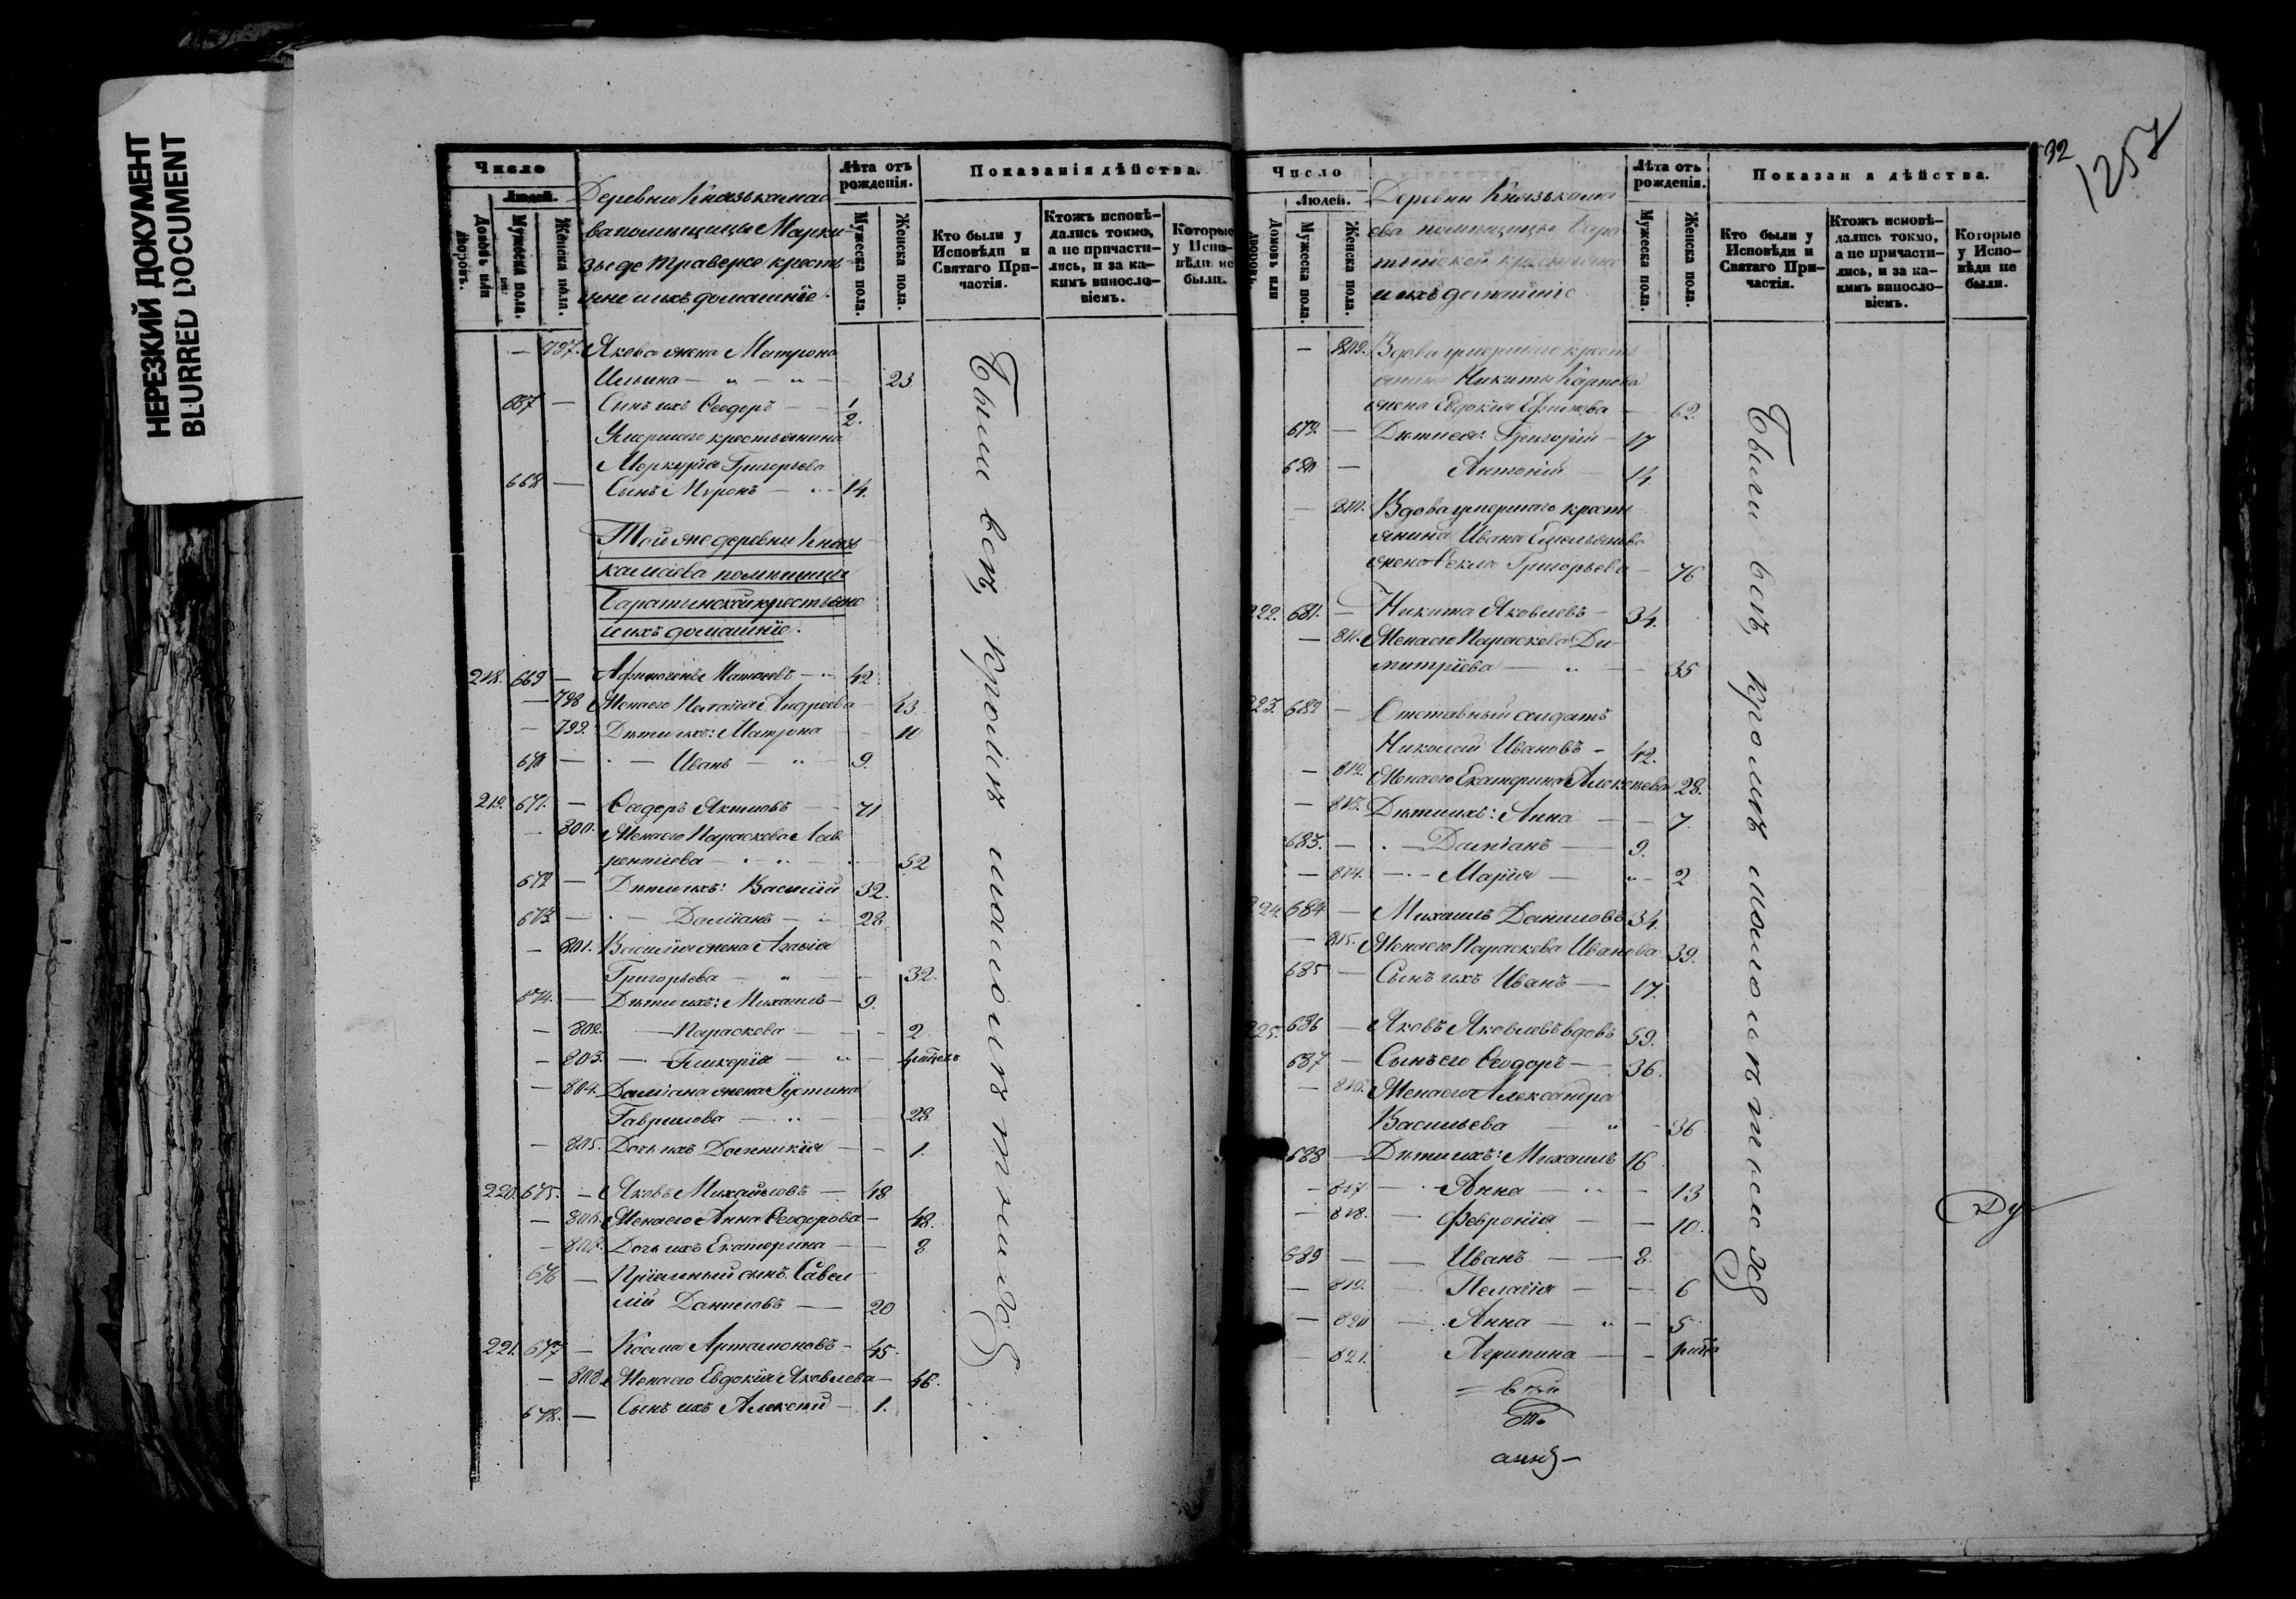 НЕРЕЗКИЙ ДОКУМЕНТ
BLURRED DOCUMENT
Число
Людей.
Домовъ или дворовъ.
Мужеска пола.
Женска пола.
Деревни Князькамае
ва помѣщицы Марки
зы де Траверсе кресть
яне и ихъ домашніе.
Лѣта отъ рожденія.
Мужеска пола.
Женска пола.
Показанія дѣйства.
Кто были у Исповѣди и Святаго При-частія.
Ктожъ исповѣ-дались токмо, а не причасти-лись, и за ка-кимъ виносло-віемъ.
Которые у Испо-вѣди не были.
— 797. Якова жена Матрона
Ильина — „ — „ — 23
667 — Сынъ ихъ Ѳеодоръ — 1/2.
Умершаго крестьянина
Меркурія Григорьева
668 — Сынъ Миронъ — 14.
Той же деревни Князь
камаева помѣщицы
Баратынской крестьяне
и ихъ домашніе.
218. 669 — Афиногенъ Матвеевъ — 42
— 798 Жена его Пелагія Андреева — 43.
— 799. Дѣти ихъ: Матрона — 10
670 — Иванъ — „ — 9.
219. 671. — Ѳеодоръ Якимовъ — 71
— 800. Жена его Параскева Лав
рентіева — 52
672 — Дѣти ихъ: Василій 32.
673. — Даміанъ — 28
— 801. Василія жена Агафія
Григорьева — „ — 32.
674. — Дѣти ихъ: Михаилъ — 9.
— 802. — Параскева — 2
— 803. — Гликерія — „ —
— 804. Даміана жена Іустина
Гаврилова — „ 28
— 805. Дочь ихъ Домникія — 1.
220. 675. — Яковъ Михайловъ — 48
— 806. Жена его Анна Ѳеодорова — 48.
— 807. Дочь ихъ Екатерина — 8
676 — Пріемный сынъ Савел
лій Даниловъ — 20
221. 677 — Косма Артамоновъ — 45.
— 808. Жена его Евдокія Яковлева — 46.
678. — Сынъ ихъ Алексій — 1.
Были всѣ, кромѣ малолѣтнихъ
32
1257
Число
Людей.
Домовъ или дворовъ.
Мужеска пола.
Женска пола.
Деревни Князькама
ева помѣщицы Бара
тынской крестьяне
и ихъ домашніе
Лѣта отъ рожденія.
Мужеска пола.
Женска пола.
Показан я дѣйства.
Кто были у Исповѣди и Святаго При-частія.
Ктожъ исповѣ-дались токмо, а не причасти-лись, и за ка-кимъ винослo-віемъ.
Которые у Испо-вѣди не были.
— 809. Вдова умершаго кресть
янина Никиты Карпова
жена Евдокія Ефимова — 62.
679. — Дѣти ея: Григорій — 17
680 — Антоній — 14.
— 810. Вдова умершаго кресть
янина Ивана Емельянова
жена Ѳекла Григорьева — 76
222. 681. — Никита Яковлевъ — 34.
— 811. Жена его Параскева Ди
митріева — „ — 35
223. 682 — Отставный солдатъ
Николай Ивановъ — 42.
— 812. Жена его Екатерина Алексѣева 28.
— 813. Дѣти ихъ: Анна — 7.
683. — Даміанъ — 9.
— 814. — Марія — „ — 2
224. 684 — Михаилъ Даниловъ 34.
— 815. Жена его Параскева Иванова 39.
685 — Сынъ ихъ Иванъ — 17.
225. 686 — Яковъ Яковлевъ вдовъ 59.
687 — Сынъ его Ѳеодоръ — 36.
— 816. Жена его Александра
Васильева — „ — 36
688 — Дѣти ихъ: Михаилъ 16
— 817. — Анна — „ — 13
— 818. — Февронія — 10.
689 — — Иванъ — 8.
— 819. — Пелагія — 6
— 820 — Анна — „ — 5.
— 821. Агрипина —
Были всѣ, кромѣ малолѣтнихъ